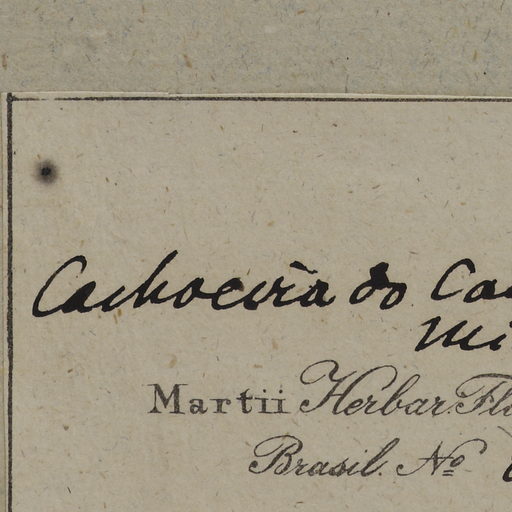 Cachoeira do Ca
Mi
Martii Herbar. Flo
Brasil. No